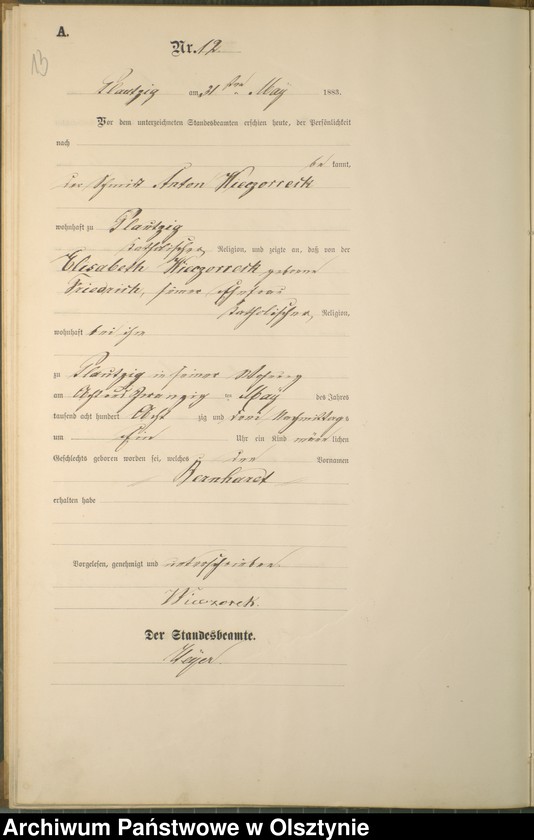 A.
13
Nr. 12.
Plautzig am 31 ten May 1883.
Vor dem unterzeichneten Standesbeamten erschien heute, der Persönlichkeit
nach
be kannt,
der Schmidt Anton Wieczorreck
wohnhaft zu Plautzig
katholischer Religion, und zeigte an, daß von der
Elisabeth Wieczorreck geborene
Friedrich, seiner Ehefrau
katholischer Religion,
wohnhaft bei ihm
zu Plautzig in seiner Wohnung
am Achtundzwanzig ten May des Jahres
tausend acht hundert Acht zig und drei Nachmittags
um Ein Uhr ein Kind männ lichen
Geschlechts geboren worden sei, welches den Vornamen
Bernhardt
erhalten habe
Vorgelesen, genehmigt und unterschrieben.
Wieczorek.
Der Standesbeamte.
Archiwum Państwowe w Olsztynie